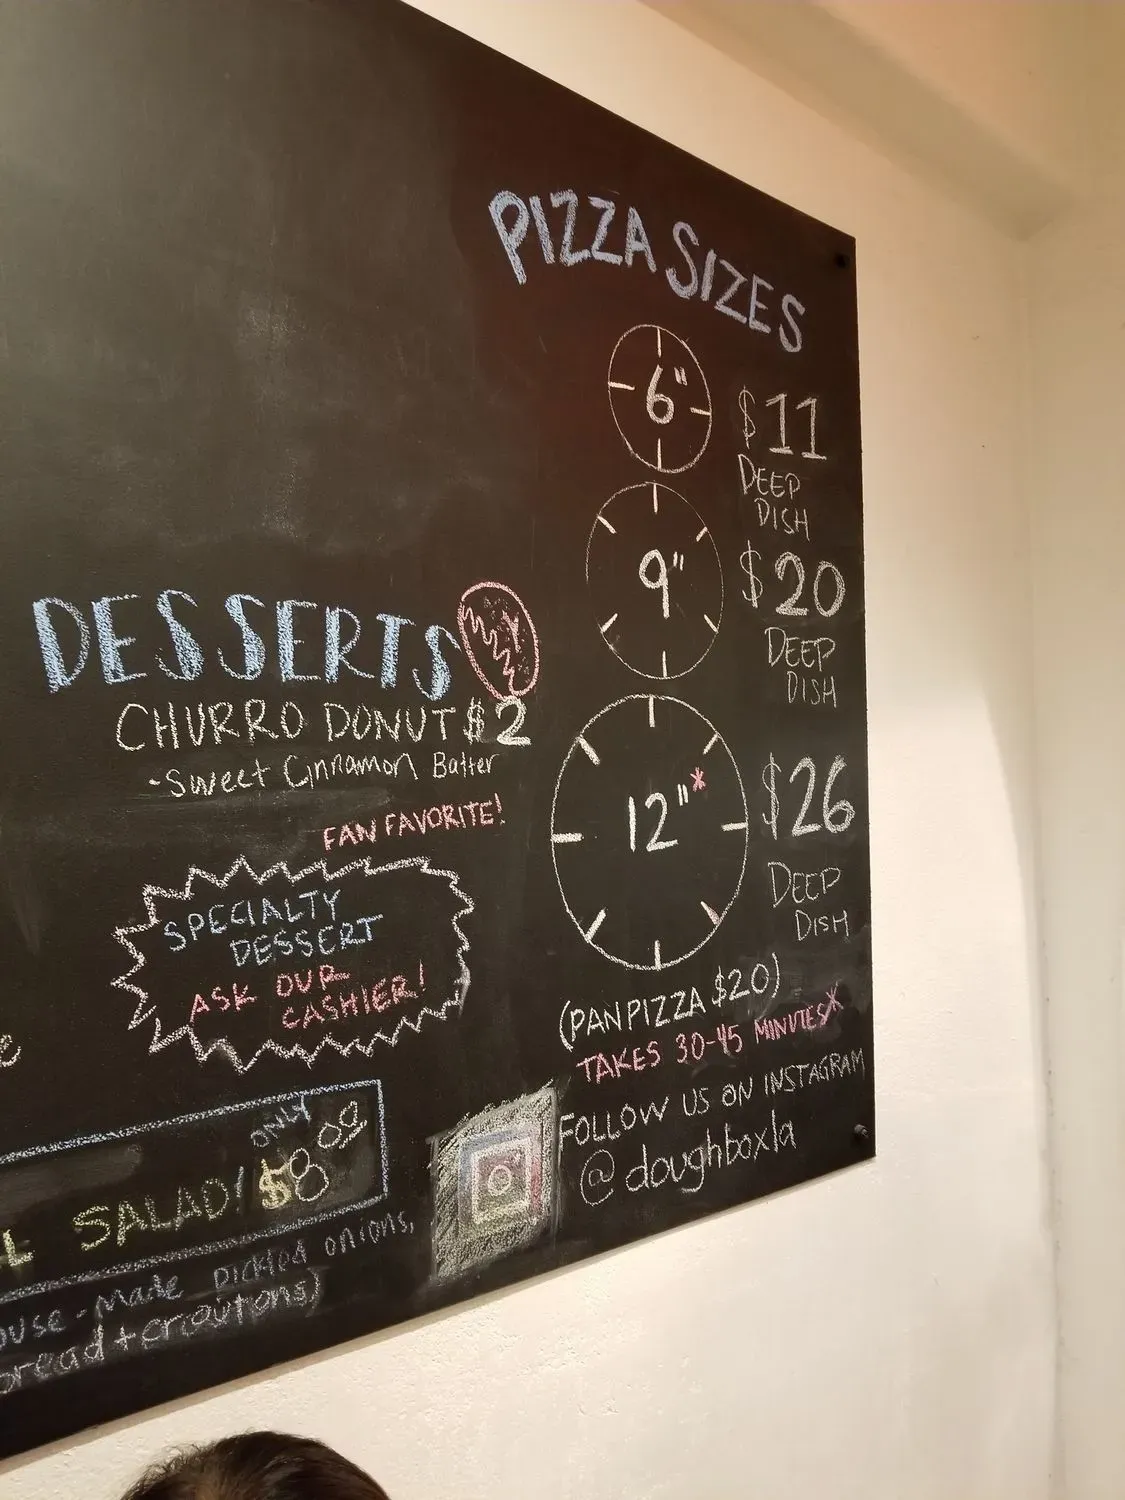 PIZZA SIZES
6"
$11
DEEP
DISH
9"
$20
DEEP
DISH
12"*
$26
DEEP
DISH
(PAN PIZZA $20)
TAKES 30-45 MINUTES*
FOLLOW US ON INSTAGRAM
@doughboxla
DESSERTS
CHURRO DONUT $2
-Sweet Cinnamon Batter
FAN FAVORITE!
SPECIALTY
DESSERT
ASK OUR
CASHIER!
ONLY
L SALAD! $8.00
ouse-made pickled onions,
bread + croutons)